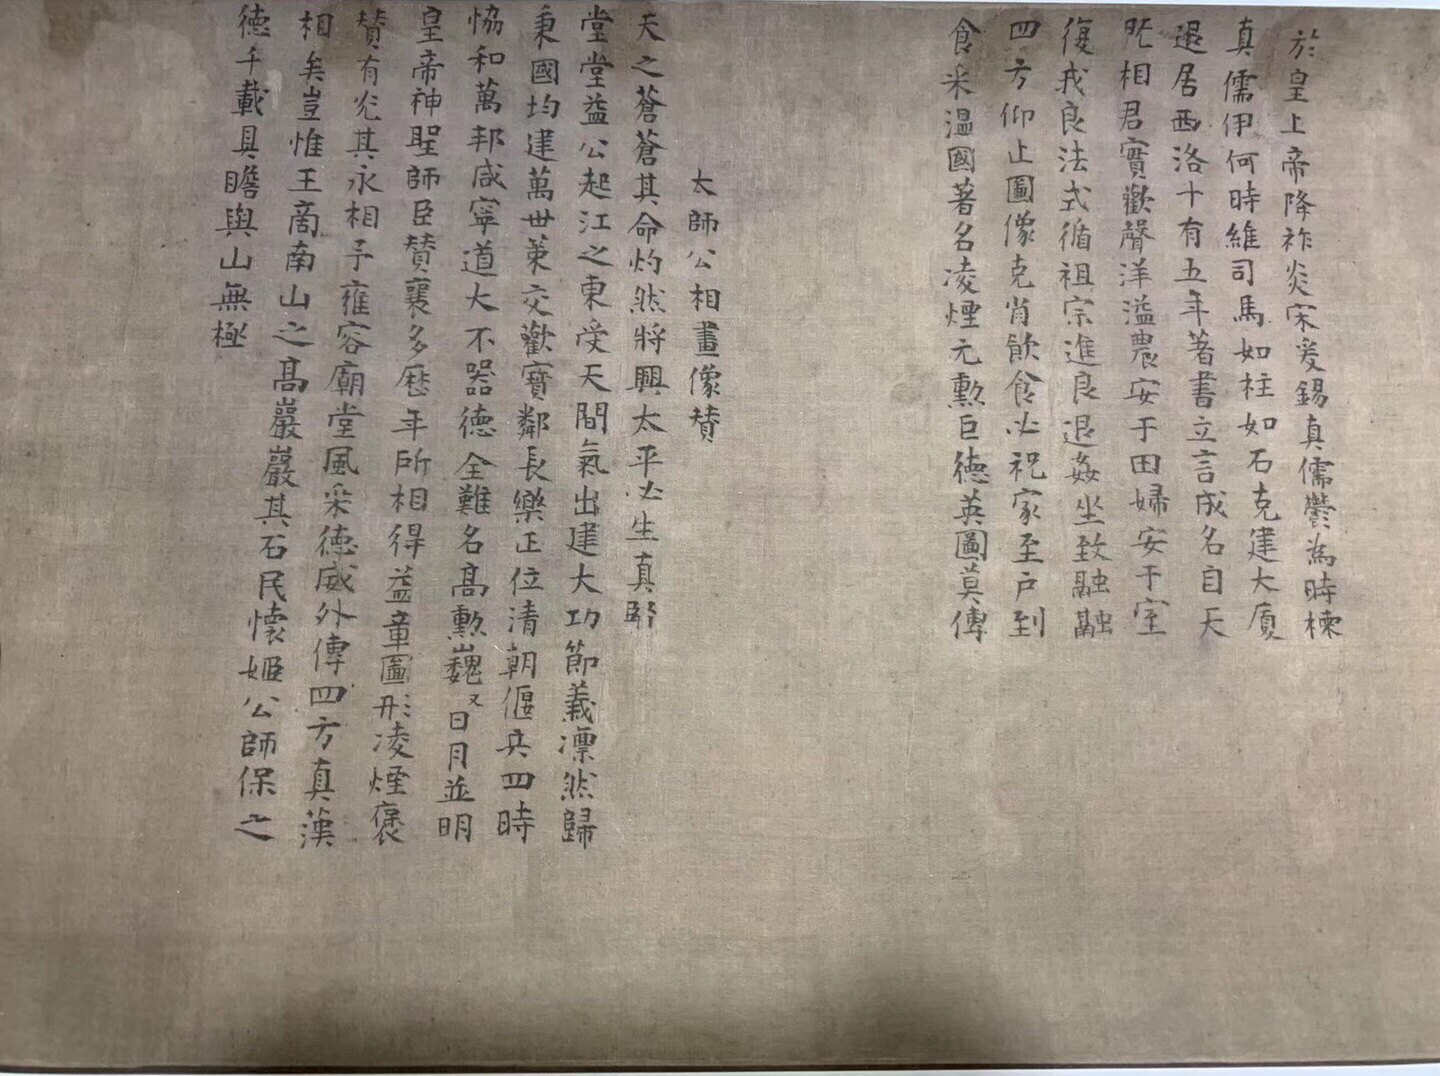 於皇上帝降祚炎宋爰錫真儒鬱為時棟
真儒伊何時維司馬如柱如石克建大廈
退居西洛十有五年著書立言成名自天
旣相君實歡聲洋溢農安于田婦安于室
復我良法式循祖宗進良退姦坐致融融
四方仰止圖像克肖飲食必祝家至戶到
食采溫國著名凌煙元勲巨德英圖莫傳
太師公相畫像賛
天之蒼蒼其命灼然將興太平必生真賢
堂堂益公起江之東受天間氣出建大功節義凜然歸
秉國均建萬世策交歡寶鄰長樂正位清朝偃兵四時
恊和萬邦咸寧道大不器德全難名高勲巍又日月並明
皇帝神聖師臣賛襄多歷年所相得益章圖形凌煙褒
賛有光其永相予雍容廟堂風采德威外傳四方真漢
相矣豈惟王商南山之高巖巖其石民懷姬公師保之
德千載具瞻與山無極